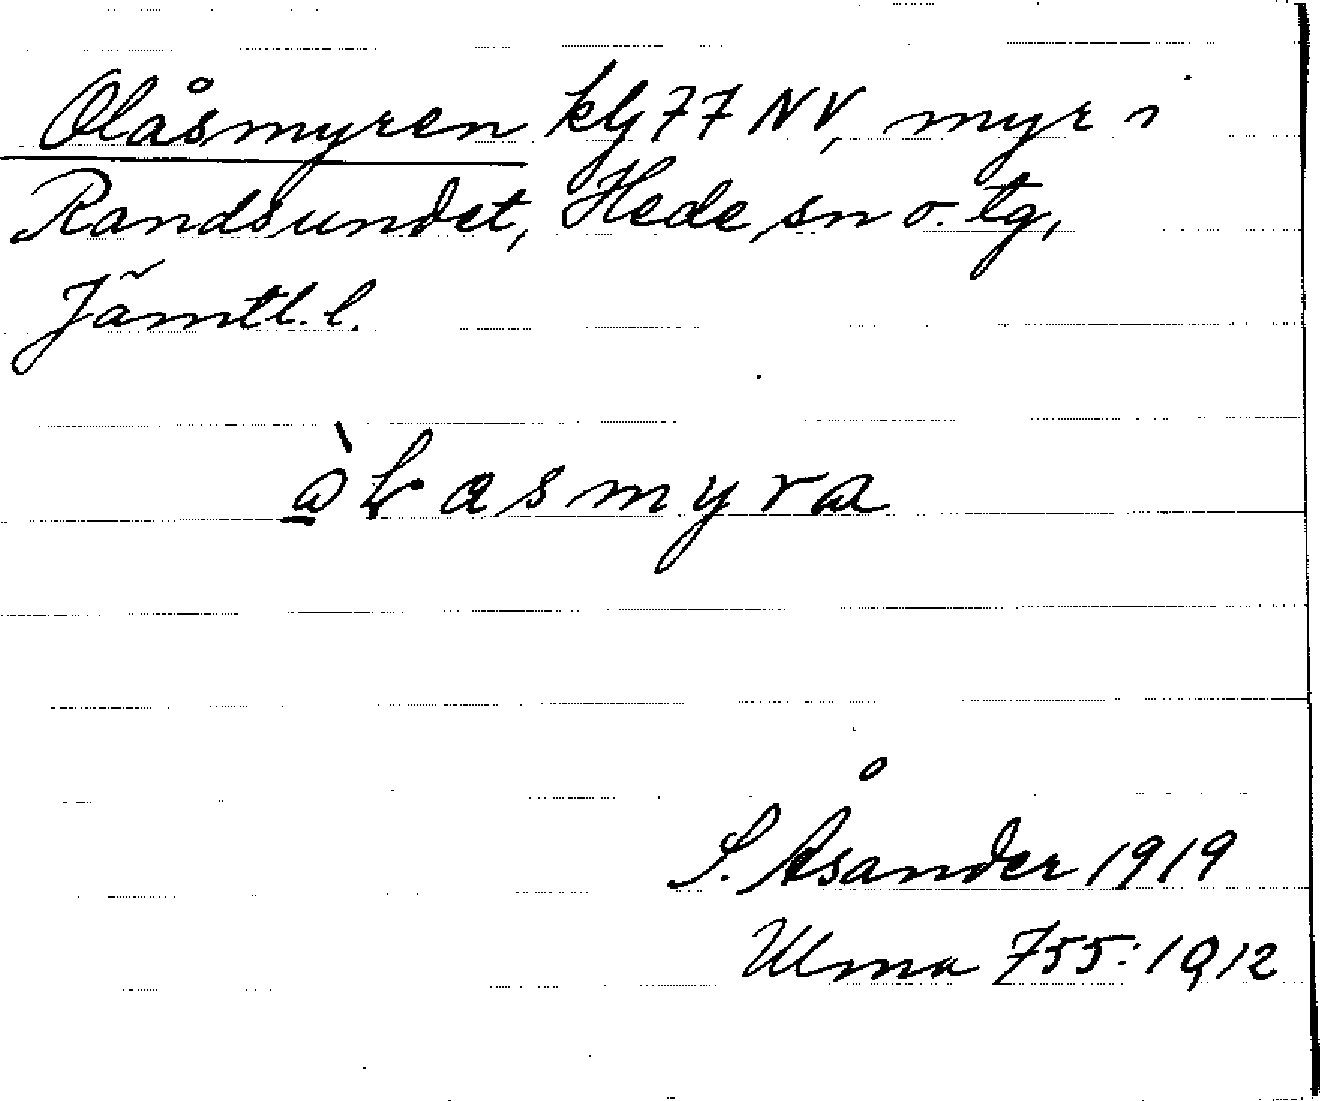 Olåsmyren kbl 77 NV, myr i
Randsundet, Hede sn o. tg,
Jämtl. l.
åkasmyra
S. Åsander 1919
Ulma 755:1912